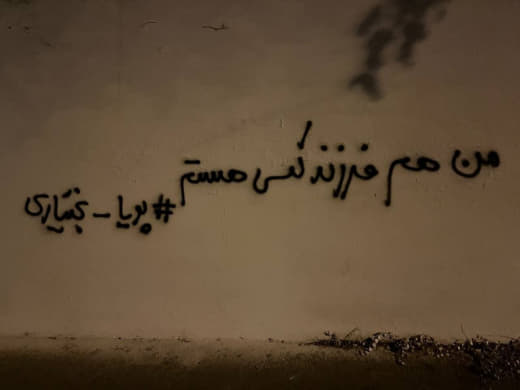 من هم فرزند کسی هستم #پویا_بختیاری